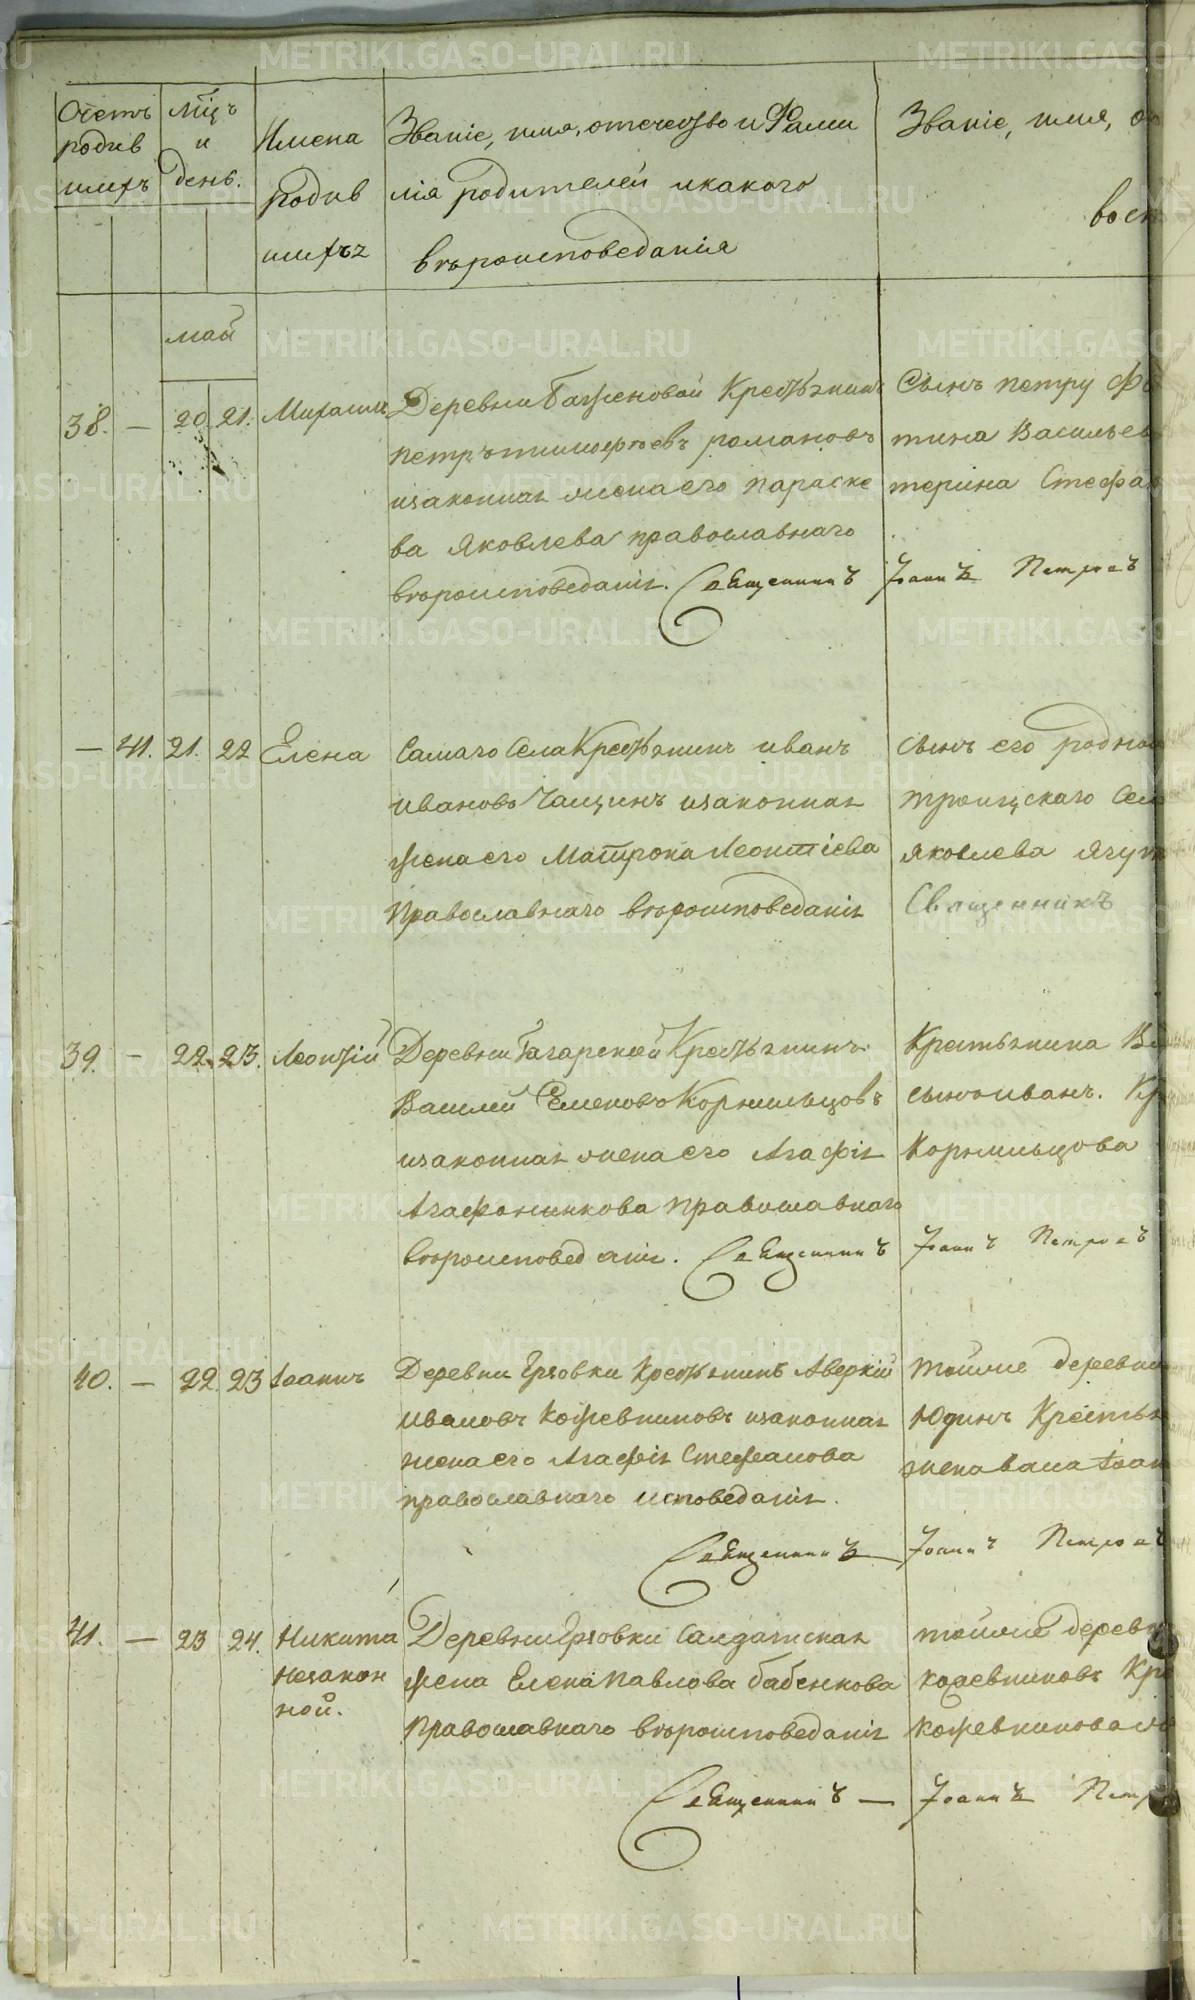 Счетъ родив шихъ
Мѣц ъ и день.
Имена родив шихъ
Званіе, имя, отечество и Фами
лія родителей и какого
вѣроисповеданія
Званіе, имя,
восп
май
38. — 20 21. Михаилъ
Деревни Баженовой Крестьянинъ
петръ тимофѣевъ романовъ
изаконная жена его параске
ва Яковлева православнаго
вѣроисповеданія. Священникъ
Сынъ петру
тина Васильев
терина Стефан
Іоаннъ Петровъ
— 41. 21. 22 Елена
Самаго Села Крестьянинъ иванъ
ивановъ Чащинъ изаконная
жена его Матрона Леонтіева
Православнаго вѣроисповеданія
сынъ его родной
троицскаго Села
Яковлева
Священникъ
39. — 22. 23. Леонтій
Деревни Гагарской Крестьянинъ
Василей Семеновъ Кормильцовъ
изаконная жена его Агафія
Агафоникова православнаго
вѣроисповеданія. Священникъ
Крестьянина
сынъ иванъ. Кр
Кормильцова
Іоаннъ Петровъ
40. — 22. 23 Іоаннъ
Деревни Гряовки Крестьянинъ Аверкій
ивановъ Кожевниковъ изаконная
жена его Агафія Стефанова
православнаго исповеданія.
Священникъ
тойже деревни
Юдинъ Крестья
женавана
Іоаннъ Петровъ
41. — 23 24. Никита
незакон
ной.
Деревни Солдатская
жена Елена Павлова бабенкова
Православнаго вѣроисповеданія
Священникъ —
тойже деревн
кожевниковъ Кре
кожевникова
Іоаннъ Петр
METRIKI.GASO-URAL.RU